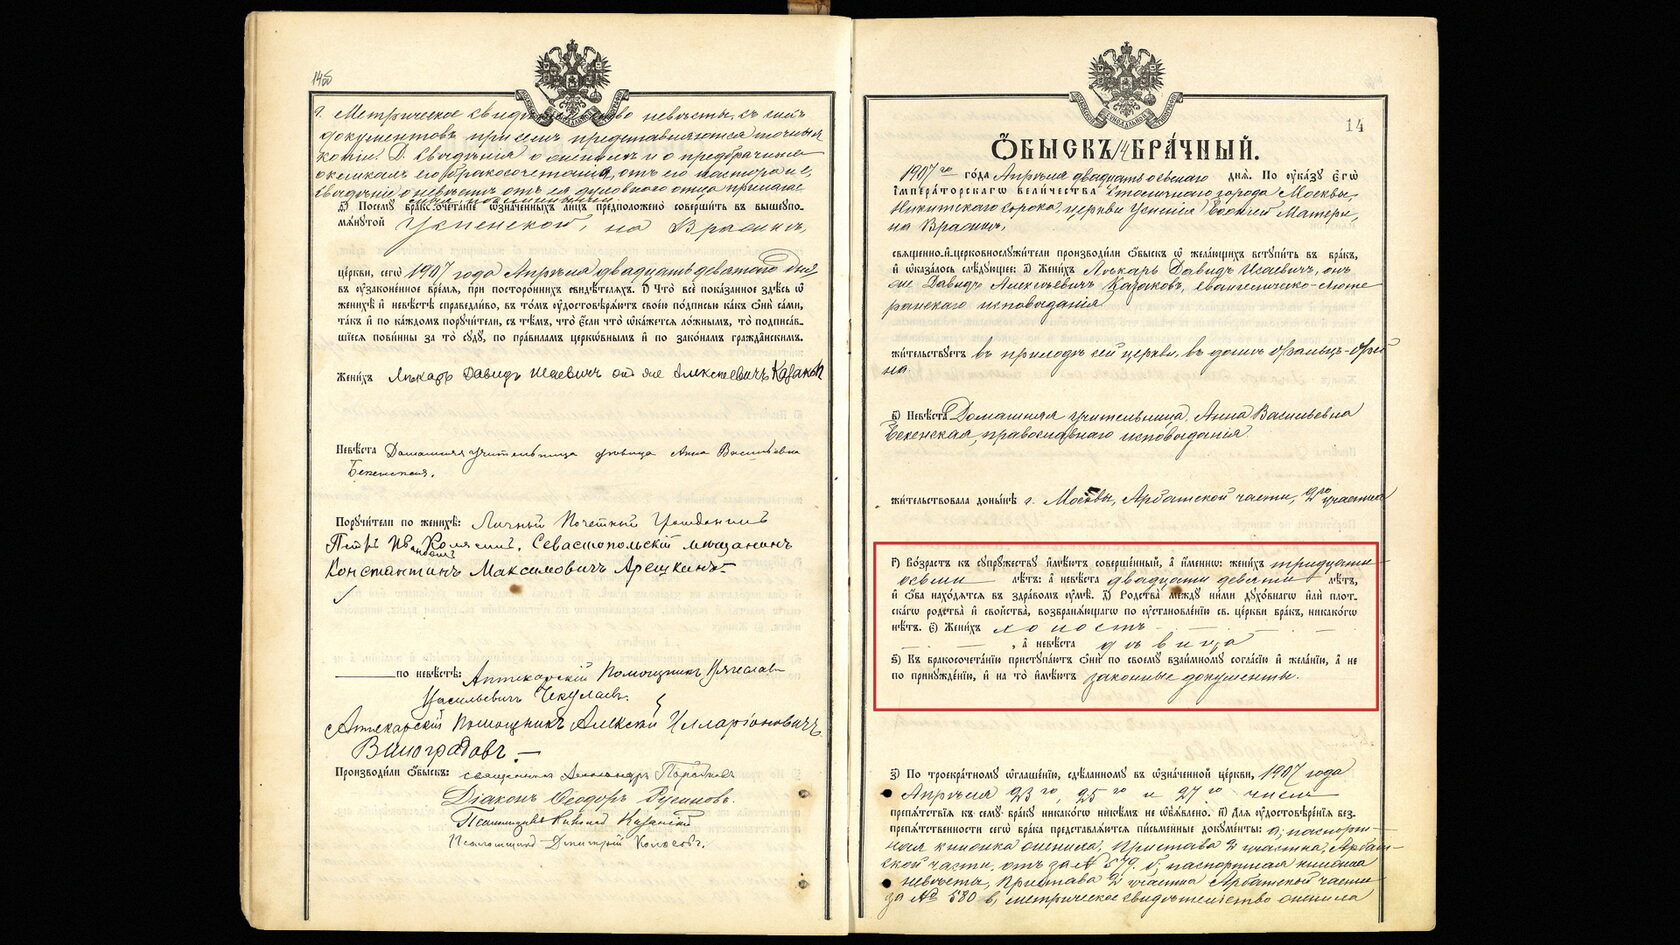 145
г. Метрическое свидетельство невесты, съ сихъ
документовъ при семъ представляются точныя
копiи. Д. Свѣдѣнiя о женихѣ и о предбрачныхъ
окликахъ его бракосочетанiя, отъ его пастора и е,
свѣдѣнiе о невѣстѣ отъ ея духовнаго отца
д҃) Посему бракосочетанїе ѡзначенныхъ лицъ предположено совершить въ вышеупо-
мянутой Успенской, на Вражкѣ,
церкви, сегѡ 1907 года Апрѣля двадцать девятаго дня
въ узаконенное время, при постороннихъ свидѣтеляхъ. І) Что все показанное здѣсь ѡ
женихѣ и невѣстѣ справедливо, въ томъ удостовѣряютъ своею подписью какъ ѻни сами,
такъ и по каждомъ поручители, съ тѣмъ, что если что ѡкажется ложнымъ, то подписав-
шїеся повинны за то суду, по правиламъ церковнымъ и по законамъ гражданскимъ.
Женихъ Лѣкарь Давидъ Исаевичъ онъ же Алексѣевичъ Казаковъ
Невѣста Домашняя учительница дѣвица Анна Васильевна
Бекенская.
Поручители по женихѣ: Личный Почетный Гражданинъ
Петръ Ивановъ Севастопольскiй мѣщанинъ
Константинъ Максимовичъ Арешкинъ
по невѣстѣ: Аптекарскiй Помощникъ Вячеславъ
Васильевичъ Чекулаевъ.
Аптекарскiй помощникъ Алексѣй Илларiоновичъ
Виноградовъ.
Производили ѻбыскъ: священникъ Александръ
Дiаконъ Ѳеодоръ Русиновъ.
Псаломщикъ Николай
Псаломщикъ Дмитрiй
14
ѺБЫСКЪ 14 БРАЧНЫЙ.
1907 го года Апрѣля двадцать осьмаго дня. По указу Егѡ
Императорскагѡ Величества Столичнаго города Москвы,
Никитскаго сорока, церкви Успенiя Божiей Матери,
на Вражкѣ,
священно-и-церковнослужители производили ѻбыскъ ѡ желающихъ вступить въ бракъ,
и ѡказалось слѣдующее: а҃) Женихъ Лѣкарь Давидъ Исаевичъ, онъ
же Давидъ Алексѣевичъ Казаковъ, евангелическо-люте
ранскаго исповѣданiя
жительствуетъ въ приходѣ сей церкви, въ домѣ Фальцъ-Фей
на
в҃) Невѣста Домашняя учительница, Анна Васильевна
Бекенская, православнаго исповѣданiя.
жительствовала донынѣ г. Москвы, Арбатской части, 2го участка
г҃) Возрастъ къ супружеству имѣютъ совершенный, а именнѡ: женихъ тридцати
осьми лѣтъ: а невѣста двадцати девяти лѣтъ,
и ѻба находятся въ здравомъ умѣ. д҃) Родства между ними духовнагѡ или плот-
скагѡ родства и свойства, возбраняющагѡ по установленїю св. церкви бракъ, никакогѡ
нѣтъ. є҃) Женихъ холостъ
, а невѣста дѣвица
ѕ҃) Къ бракосочетанїю приступаютъ ѻни по своему взаимному согласїю и желанїю, а не
по принужденїю, и на то имѣютъ законные документы.
з҃) По троекратному ѡглашенїю, сдѣланному въ ѡзначенной церкви, 1907 года
Апрѣля 23 го, 25 го и 27 го числа
препятствїя къ сему браку никакогѡ никѣмъ не ѡбъявлено. и҃) Для удостовѣренїя без-
препятственности сегѡ брака представляются письменные документы: а, паспорт-
ная книжка жениха, Пристава 2 участка, Арбат-
ской части, отъ за № 579. б, паспортная книжка
невѣсты, Пристава 2 участка Арбатской части
за № 580 в, метрическое свидѣтельство жениха